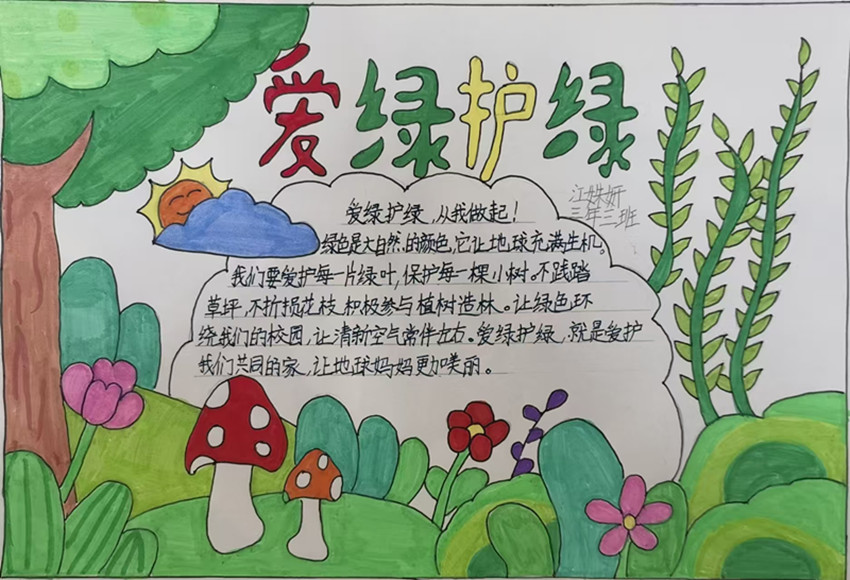 爱绿护绿
江姝妍
三年三班
爱绿护绿,从我做起!
绿色是大自然的颜色,它让地球充满生机。
我们要爱护每一片绿叶,保护每一棵小树。不践踏
草坪,不折损花枝,积极参与植树造林。让绿色环
绕我们的校园,让清新空气常伴左右。爱绿护绿,就是爱护
我们共同的家,让地球妈妈更加美丽。